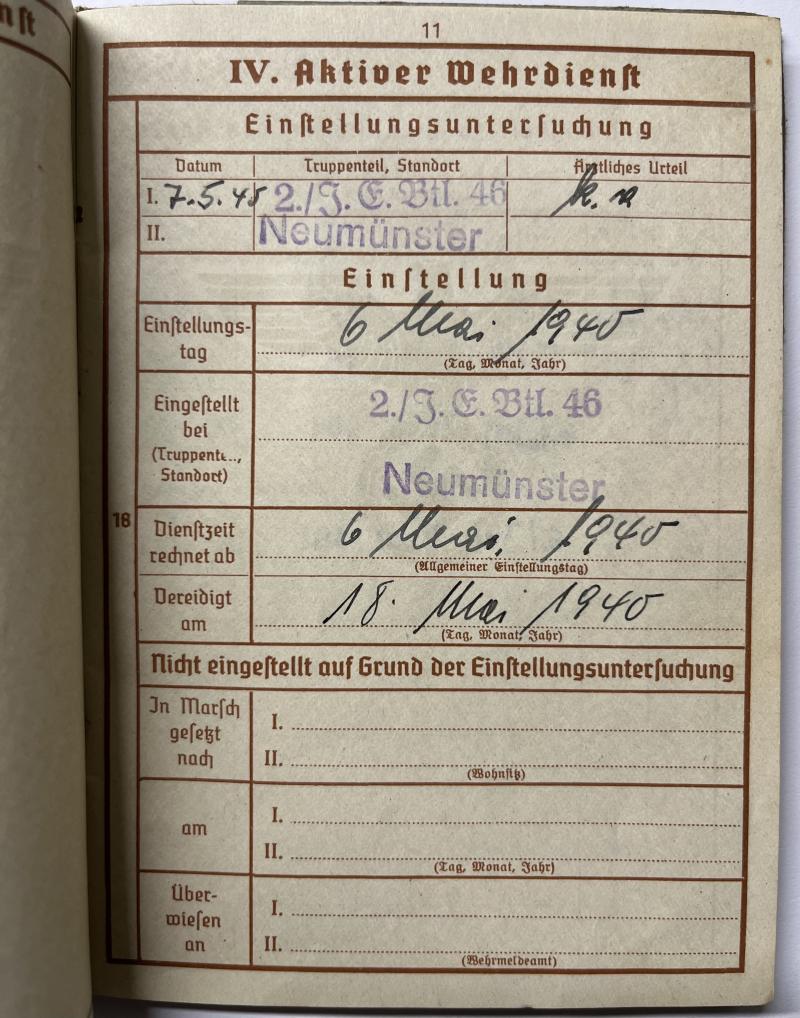 nſt
11
IV. Aktiver Wehrdienſt
Einſtellungsunterſuchung
Datum Truppenteil, Standort Ärztliches Urteil
I. 7.5.40 2./J. E. Btl. 46 k. v
II. Neumünster
Einſtellung
Einſtellungs-
tag
6 Mai 1940
(Tag, Monat, Jahr)
Eingeſtellt
bei
(Truppente..,
Standort)
2./J. E. Btl. 46
Neumünster
18
Dienſtzeit
rechnet ab
6 Mai. 1940
(Allgemeiner Einſtellungstag)
Vereidigt
am
18. Mai 1940
(Tag, Monat, Jahr)
Nicht eingeſtellt auf Grund der Einſtellungsunterſuchung
In Marſch
geſetzt
nach
I.
II.
(Wohnſitz)
am
I.
II.
(Tag, Monat, Jahr)
Über-
wieſen
an
I.
II.
(Wehrmeldeamt)